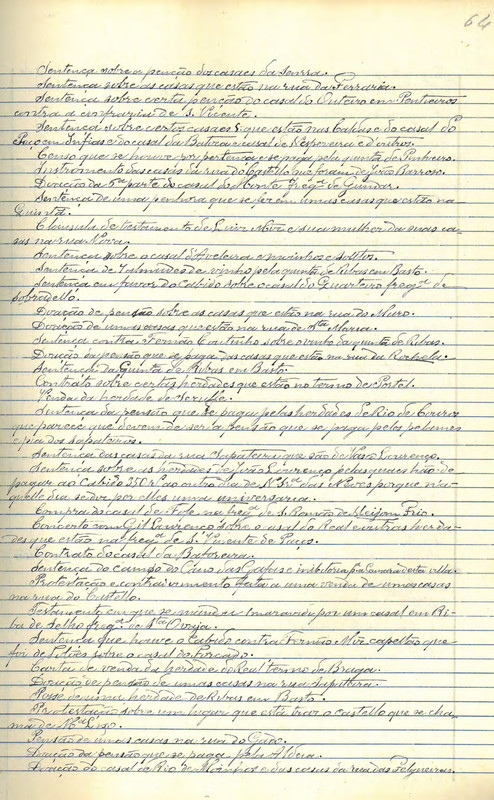 64
Sentença sobre a penção dos casaes da
Sentença sobre as casas que estão na rua da Ferraria.
Sentença sobre certa penção do casal do Outeiro em
contra a confrazia de S. Vicente.
Sentença sobre certos casaes que estão nas Caldas e do casal do
Paço em Infias e do casal da e casal de e d'outros.
Censo que se houve por pertença e se paga pela quinta de Pinheiro.
Instrumento das casas da rua do Castello que foram de João Barroso.
Doação da 5ª parte do casal do Monte fregª de Gundar.
Sentença de uma que se fez em umas casas que estão na
Quintã.
Clausula de testamento de e sua mulher da suas ca-
sas na rua Nova.
Sentença sobre o casal d'Aveleira e moinhos e
Sentença de 7 almudes de vinho pela quinta de Ribas em Basto.
Sentença em favor do Cabido sobre o casal do Quarteiro fregª de
Sobradello.
Doação de pensão sobre as casas que estão na rua do Muro.
Doação de umas casas que estão na rua de Stª Maria.
Sentença contra Fernão Coutinho sobre o vinho da quinta de Ribas.
Doação da pensão que se paga das casas que estão na rua da
Sentença da Quinta de Ribas em Basto.
Contrato sobre certas herdades que estão no termo de
Venda da herdade de
Sentença da pensão que se paga pelas herdades de Rio de Couros
que parece que devem de ser a pensão que se paga pelos pelames
e pia dos sapateiros.
Sentença das casas da rua Sapateira que são de Vasco Lourenço.
Sentença sobre as herdades de João Lourenço pelas quaes hão de
pagar ao Cabido 250 rs ao outro dia de Nª Srª das Neves porque na-
quelle dia se diz por elles uma universaria.
Compra do casal de na fregª de S. Romão de Meijom Frio.
Concerto com Gil Lourenço sobre o casal do Real e outras herda-
des que estão na fregª de S. Vicente de Paços.
Contrato do casal da
Sentença do campo do Cano das Gafas e inibitoria pª a Camara desta villa.
Protestação e contraivimento feita a uma venda de umas casas
na rua do Castello.
Testamento em que se manda 1 maravidi por um casal em Ri-
ba de Selho fregª de Stª Ovaja.
Sentença que houve o Cabido contra Fernão Miz capellão que
foi de sobre o casal do
Carta de venda da herdade do Real termo de Braga.
Doação de pensão de umas casas na rua Sapateira.
Posse de uma herdade de Ribas em Basto.
Protestação sobre um lugar que está traz o castello que se cha-
ma de
Pensão de umas casas na rua do Gado.
Doação da pensão que se paga pela Aldeia.
Doação do casal do Rio de Moinhos e das casas da rua das